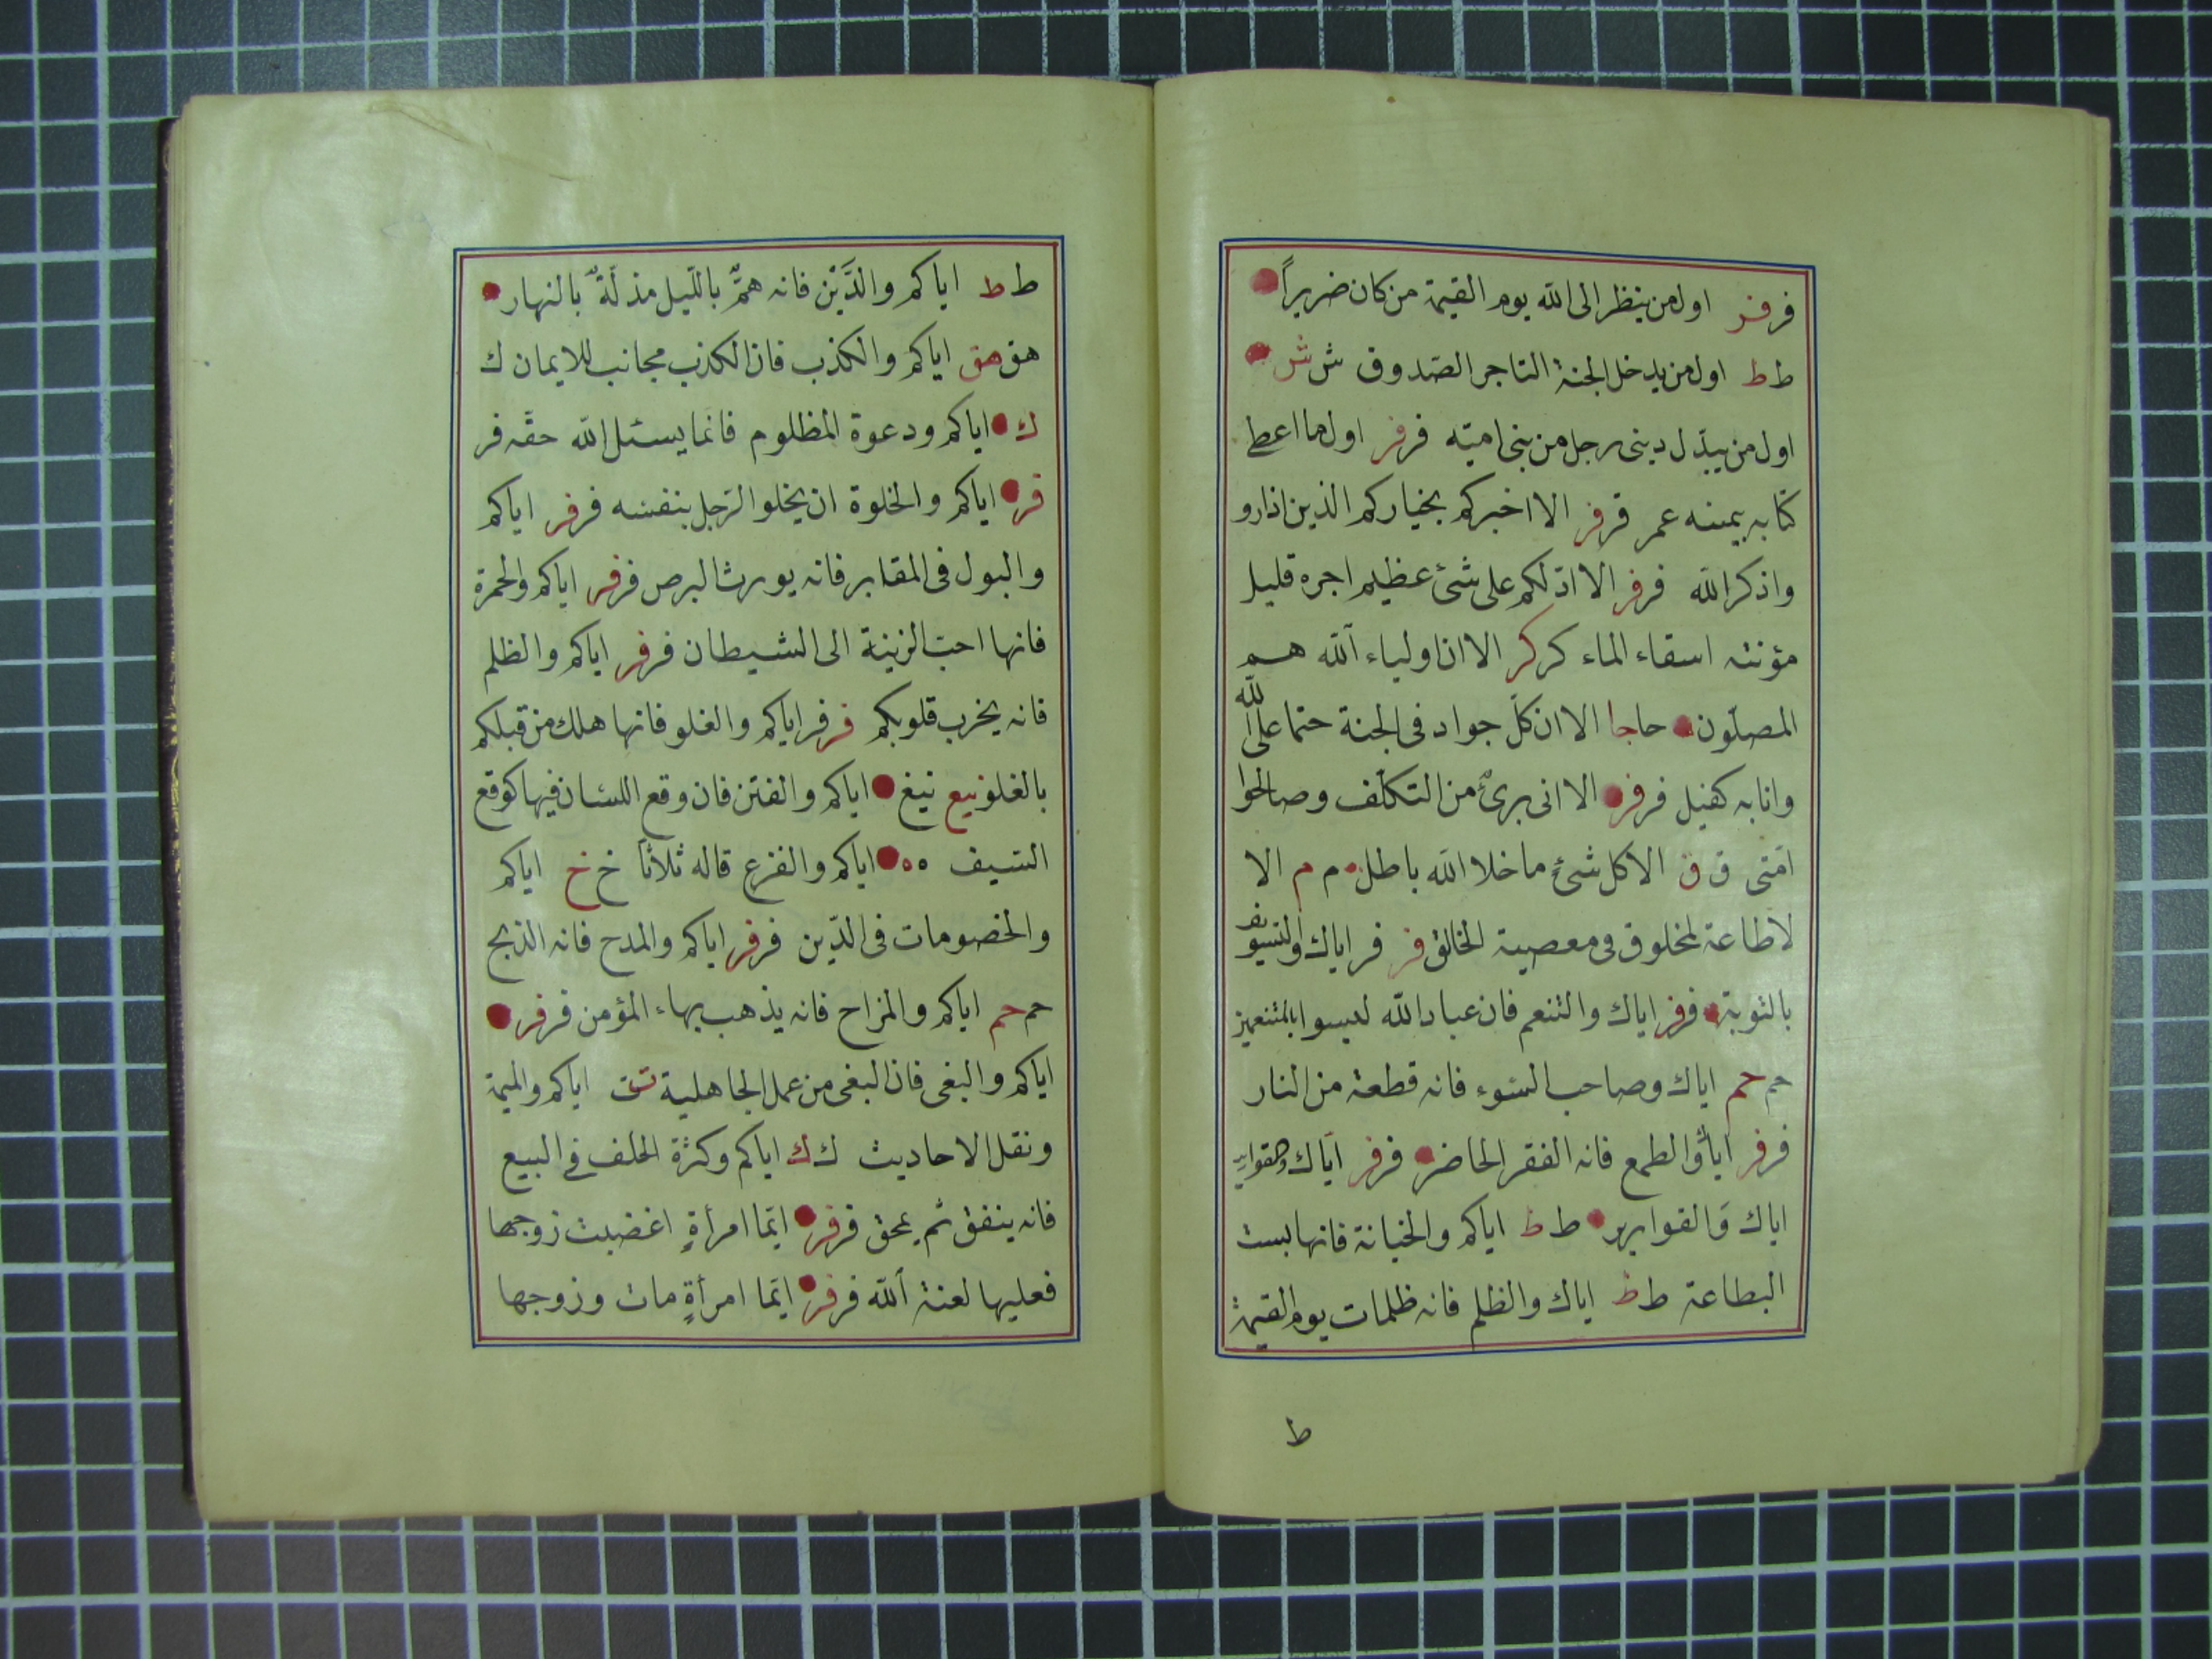 فر فر اول من ينظر الى الله يوم القيمة من كان ضريراً
ط ط اول من يدخل الجنة التاجر الصدوق ش ش
اول من يبدّل دينى رجل من بنى اميّه فر فر اول ما اعطى
كتابه بيمينه عمر فر فر الا اخبركم بخياركم الذين اذا رو
واذكر الله فر فر الا ادلّكم على شئ عظيم اجره قليل
مؤنته اسقاء الماء كر كر الا ان اولياء الله هم
المصلّون حا جا الا ان كلّ جواد فى الجنة حتما على الله
وانا به كفيل فر فر الا انى برئ من التكلّف وصالحوا
امّتى ق ق الا كل شئٍ ما خلا الله باطل م م الا
لا طاعة لمخلوق فى معصية الخالق فر فر اياك والتسويف
بالتوبة فر فر اياك والتنعم فان عباد الله ليسوا بالمتنعمين
حم حم اياك وصاحب السّوء فانه قطعة من النار
فر فر اياك والطمع فانه الفقر الحاضر فر فر اياك والقوارير
اياك والقوارير ط ط اياكم والخيانة فانها بست
البطاعة ط ط اياك والظلم فانه ظلمات يوم القيمة
ط
ط ط اياكم والدَّيْن فانه همٌّ بالليل مذلّةٌ بالنهار
هق هق اياكم والكذب فان الكذب مجانب للايمان ك
ك اياكم ودعوة المظلوم فانما يسئل الله حقّه فر
فر اياكم والخلوة ان يخلو الرّجل بنفسه فر فر اياكم
والبول فى المقابر فانه يورث البرص فر فر اياكم والحمرة
فانها احبّ الزينة الى الشيطان فر فر اياكم والظلم
فانه يخرب قلوبكم فر فر اياكم والغلو فانها هلك من قبلكم
بالغلو نيع نيغ اياكم والفتن فان وقع اللسان فيها كوقع
السّيف ه ه اياكم والفزع قاله ثلاثاً خ خ اياكم
والخصومات فى الدّين فر فر اياكم والمدح فانه الذبح
حم حم اياكم والمزاح فانه يذهب بهاء المؤمن فر فر
اياكم والبغى فان البغى من عمل الجاهلية ت ت اياكم والميمة
ونقل الاحاديث ك ك اياكم وكثرة الحلف فى البيع
فانه ينفق ثم يمحق فر فر ايّما امرأةٍ اغضبت زوجها
فعليها لعنة الله فر فر ايّما امرأةٍ مات وزوجها